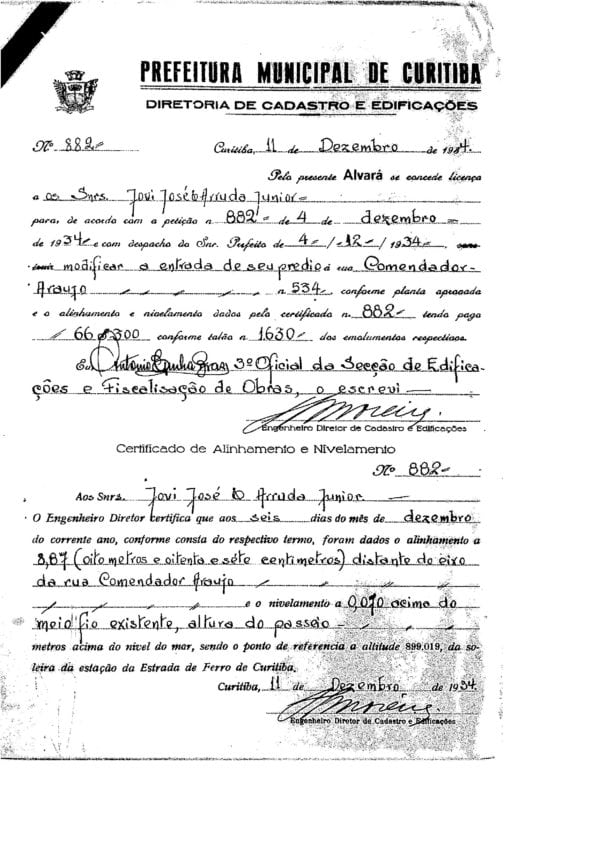 PREFEITURA MUNICIPAL DE CURITIBA
DIRETORIA DE CADASTRO E EDIFICAÇÕES
Nº 882- Curitiba, 11 de Dezembro de 1934.
Pelo presente Alvará se concede licença
a os Snrs. Jovi José D Arruda Junior =
para, de acordo com a petição n. 882- de 4 de dezembro =
de 1934- e com despacho do Snr. Prefeito de 4-/-12-/-1934-
modificar a entrada de seu predio á rua Comendador-
Araujo n. 534- conforme planta aprovada
e o alinhamento e nivelamento dados pelo certificado n. 882- tendo pago
66$300 conforme talão n. 1630- dos emolumentos respectivos.
Eu, Antonio 3º Oficial da Secção de Edifica-
ções e Fiscalisação de Obras, o escrevi —
Engenheiro Diretor de Cadastro e Edificações
Certificado de Alinhamento e Nivelamento
Nº 882-
Aos Snrs. Jovi José D Arruda Junior —
O Engenheiro Diretor certifica que aos seis dias do mês de dezembro
do corrente ano, conforme consta do respectivo termo, foram dados o alinhamento a
8,87 (oito metros e oitenta e séte centimetros) distante do eixo
da rua Comendador Araujo
e o nivelamento a 0,070 acima do
meio fio existente, altura do passeio -
metros acima do nivel do mar, sendo o ponto de referencia a altitude 899.019, da so-
leira da estação da Estrada de Ferro de Curitiba.
Curitiba, 11 de Dezembro de 1934.
Engenheiro Diretor de Cadastro e Edificações